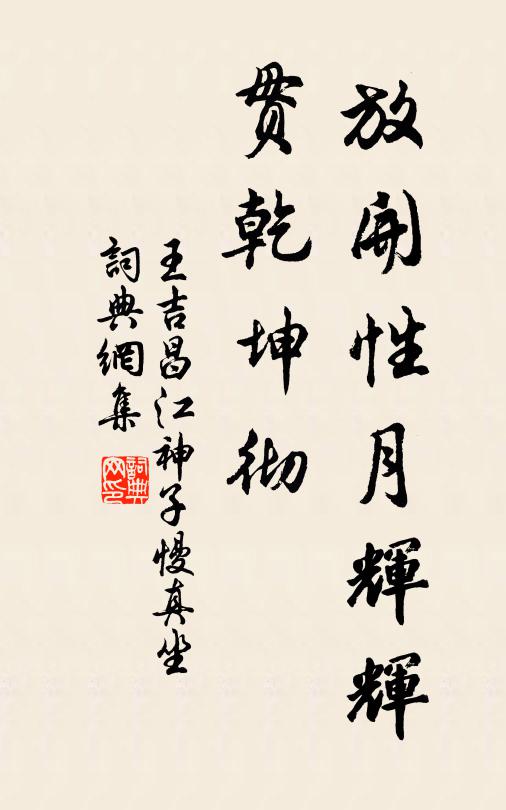 放開性月輝輝
貫乾坤彻
王吉昌江神子慢真坐
詞典網集
詞典网印